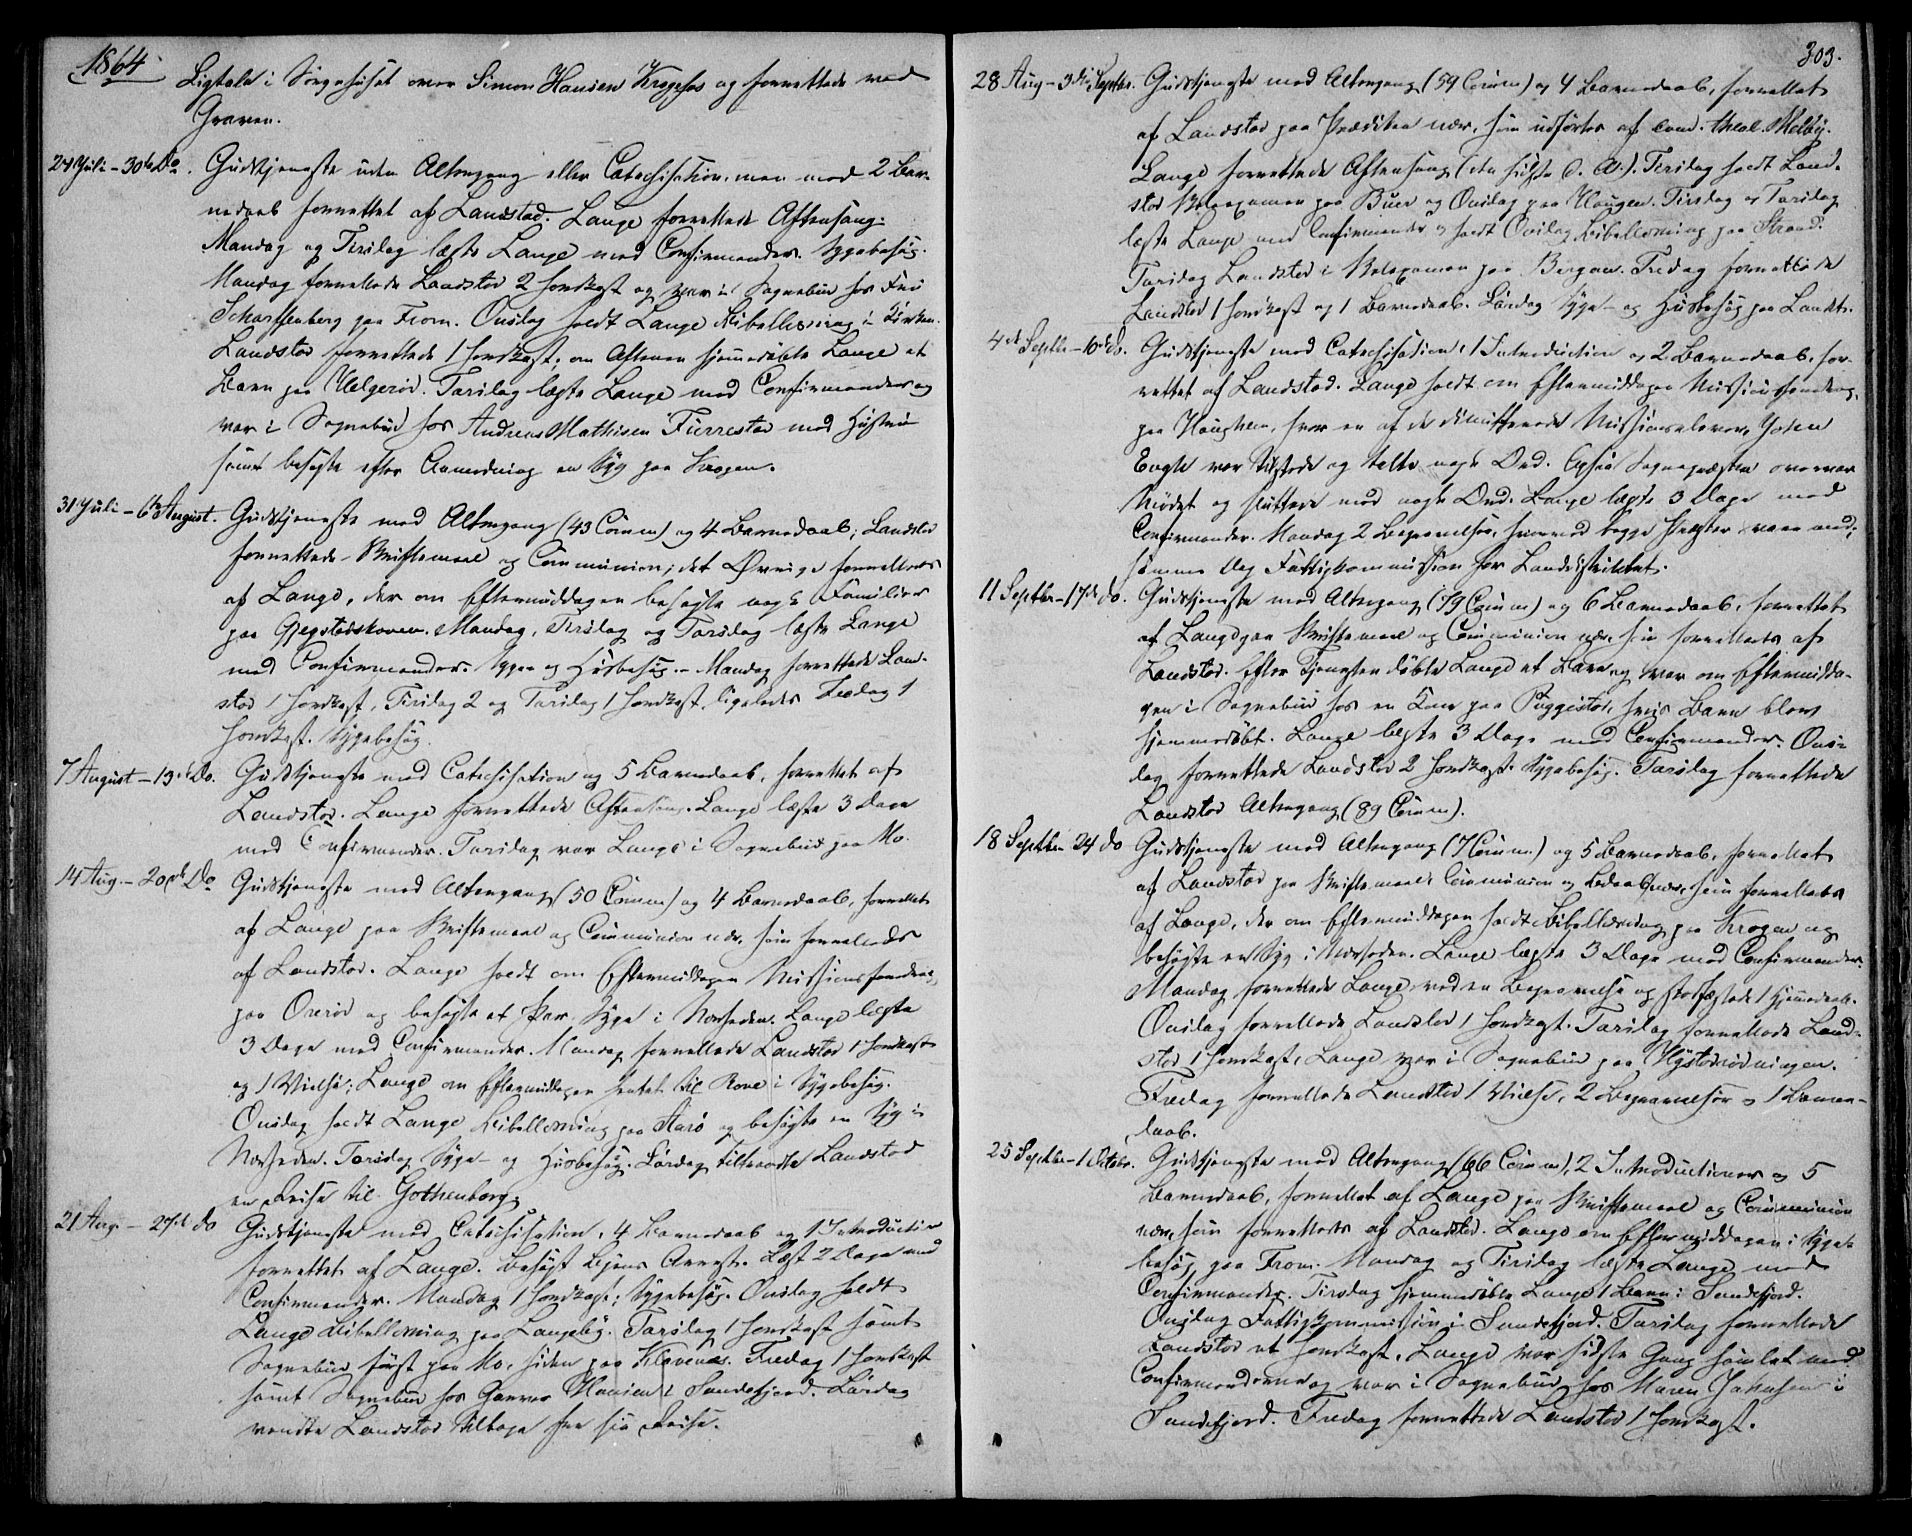 1864
Ligtale i Sørgehuset over Simon Hansen Krogshos og forrettede ved
Graven.
24 Juli – 30te Do. Gudstjeneste uden Altergang eller Catechisation, men med 2 Bar-
nedaab forrettet af Landstad. Lange forrettede Aftensang.
Mandag og Tirsdag læste Lange med Confirmander. Sygebesøg.
Mandag forrettede Landstad 2 Jordkast og var i Sognebud hos Fru
Scharffenberg paa Fron. Onsdag holdt Lange Bibellæsning i Kirken.
Landstad forrettede 1 Jordkast; om Aftenen hjemmedøbte Lange et
Barn paa Helgerød. Torsdag læste Lange med Confirmander og
var i Sognebud hos Andreas Mathisen Furrestad med Hustru
samt besøgte efter Anmodning en Syg paa Krogen.
31 Juli – 6te August. Gudstjeneste med Altergang (43 Comm) og 4 Barnedaab; Landstad
forrettede Skriftemaal og Communion; det Øvrige forrettedes
af Lange, der om Eftermiddagen besøgte nogle Familier
paa Gjegstadskoven. Mandag, Tirsdag og Torsdag læste Lange
med Confirmander. Syge- og Husbesøg. – Mandag forrettede Land-
stad 1 Jordkast, Tirsdag 2 og Torsdag 1 Jordkast, ligeledes Fredag 1
Jordkast. Sygebesøg.
7 August – 13de Do. Gudstjeneste med Catechisation og 5 Barnedaab, forrettet af
Landstad. Lange forrettede Aftensang. Lange læste 3 Dage
med Confirmander. Torsdag var Lange i Sognebud paa Mo.
14 Aug. – 20de Do Gudstjeneste med Altergang (50 Comm) og 4 Barnedaab, forrettet
af Lange paa Skriftemaal og Communion nær, som forrettedes
af Landstad. Lange holdt om Eftermiddagen Missionsforedrag
paa Orerød og besøgte et Par Syge i Nærheden. Lange læste
3 Dage med Confirmander. Mandag forrettede Landstad 1 Jordkast
og 1 Vielse; Lange om Eftermiddagen hentet til Rove i Sygebesøg.
Onsdag holdt Lange Bibellæsning paa Aarø og besøgte en Syg i
Nærheden. Torsdag Syge- og Husbesøg. Lørdag tiltraadte Landstad
en Reise til Gothenborg.
21 Aug. – 27de do Gudstjeneste med Catechisation, 4 Barnedaab og 1 Introduction
forrettet af Lange. Besøgt Byens Arrest. Læst 2 Dage med
Confirmander. Mandag 1 Jordkast; Sygebesøg. Onsdag holdt
Lange Bibellæsning paa Langeby. Torsdag 1 Jordkast samt
Sognebud først paa Mo, siden paa Klavenæs. Fredag 1 Jordkast
samt Sognebud hos Garver Hansen i Sandefjord. Lørdag
vendte Landstad tilbage fra sin Reise.
303.
28 Aug – 3die Septbr. Gudstjeneste med Altergang (59 Comm) og 4 Barnedaab, forrettet
af Landstad paa Prædiken nær, som udførtes af cand. theol. Melby.
Lange forrettede Aftensang (den sidste d. A.). Tirsdag holdt Land-
stad Skoleexamen paa Buer og Onsdag paa Haugen. Tirsdag og Torsdag
læste Lange med Confirmander og holdt Onsdag Bibellæsning paa Strand.
Torsdag Landstad i Skolexamen paa Bergan. Fredag forrettede
Landstad 1 Jordkast og 1 Barnedaab. Lørdag Syge- og Husbesøg paa Landet.
4de Septbr – 10de Do. Gudstjeneste med Catechisation, 1 Introduction og 2 Barnedaab, for-
rettet af Landstad. Lange holdt om Eftermiddagen Missionsforedrag
paa Haughem, hvor en af de dimitterede Missionselever, John
Engh var tilstede og talte nogle Ord. Ogsaa Sognepræsten overvar
Mødet og sluttede med nogle Ord. Lange læste 3 Dage med
Confirmander. Mandag 2 Begravelser, hvorved begge Præster vare med;
samme Dag Fattigkommission for Landdistriktet.
11 Septbr – 17de do. Gudstjeneste med Altergang (79 Comm) og 6 Barnedaab, forrettet
af Lange paa Skriftemaal og Communion nær, som forrettedes af
Landstad. Efter Tjenesten døbte Lange et Barn og var om Eftermidda-
gen i Sognebud hos en Kone paa Puggestad, hvis Barn blev
hjemmedøbt. Lange læste 3 Dage med Confirmander. Ons-
dag forrettede Landstad 2 Jordkast. Sygebesøg. Torsdag forrettede
Landstad Altergang (89 Comm).
18 Septbr – 24 do Gudstjeneste med Altergang (7 Comm) og 5 Barnedaab, forrettet
af Landstad paa Skriftemaal, Communion og Daab nær, som forrettedes
af Lange, der om Eftermiddagen holdt Bibellæsning paa Krogen og
besøgte en Syg i Nærheden. Lange læste 3 Dage med Confirmander.
Mandag forrettede Lange ved en Begravelse og stadfæstede 1 Hjemmedaab.
Onsdag forrettede Landstad 1 Jordkast. Torsdag forrettede Land-
stad 1 Jordkast, Lange var i Sognebud paa Hystadrødningen.
Fredag forrettede Landstad 1 Vielse, 2 Begravelser og 1 Barne-
daab.
25 Septbr – 1 Octobr. Gudstjeneste med Altergang (66 Comm), 2 Introductioner og 5
Barnedaab, forrettet af Lange paa Skriftemaal og Communion
nær, som forrettedes af Landstad. Lange om Eftermiddagen i Syge-
besøg paa Fron. Mandag og Tirsdag læste Lange med
Confirmander. Tirsdag hjemmedøbte Lange 1 Barn i Sandefjord.
Onsdag Fattigkommission i Sandefjord. Torsdag forrettede
Landstad et Jordkast, Lange var sidste Gang samlet med
Confirmanderne og var i Sognebud hos Maren Jakobsen i
Sandefjord. Fredag forrettede Landstad 1 Jordkast.